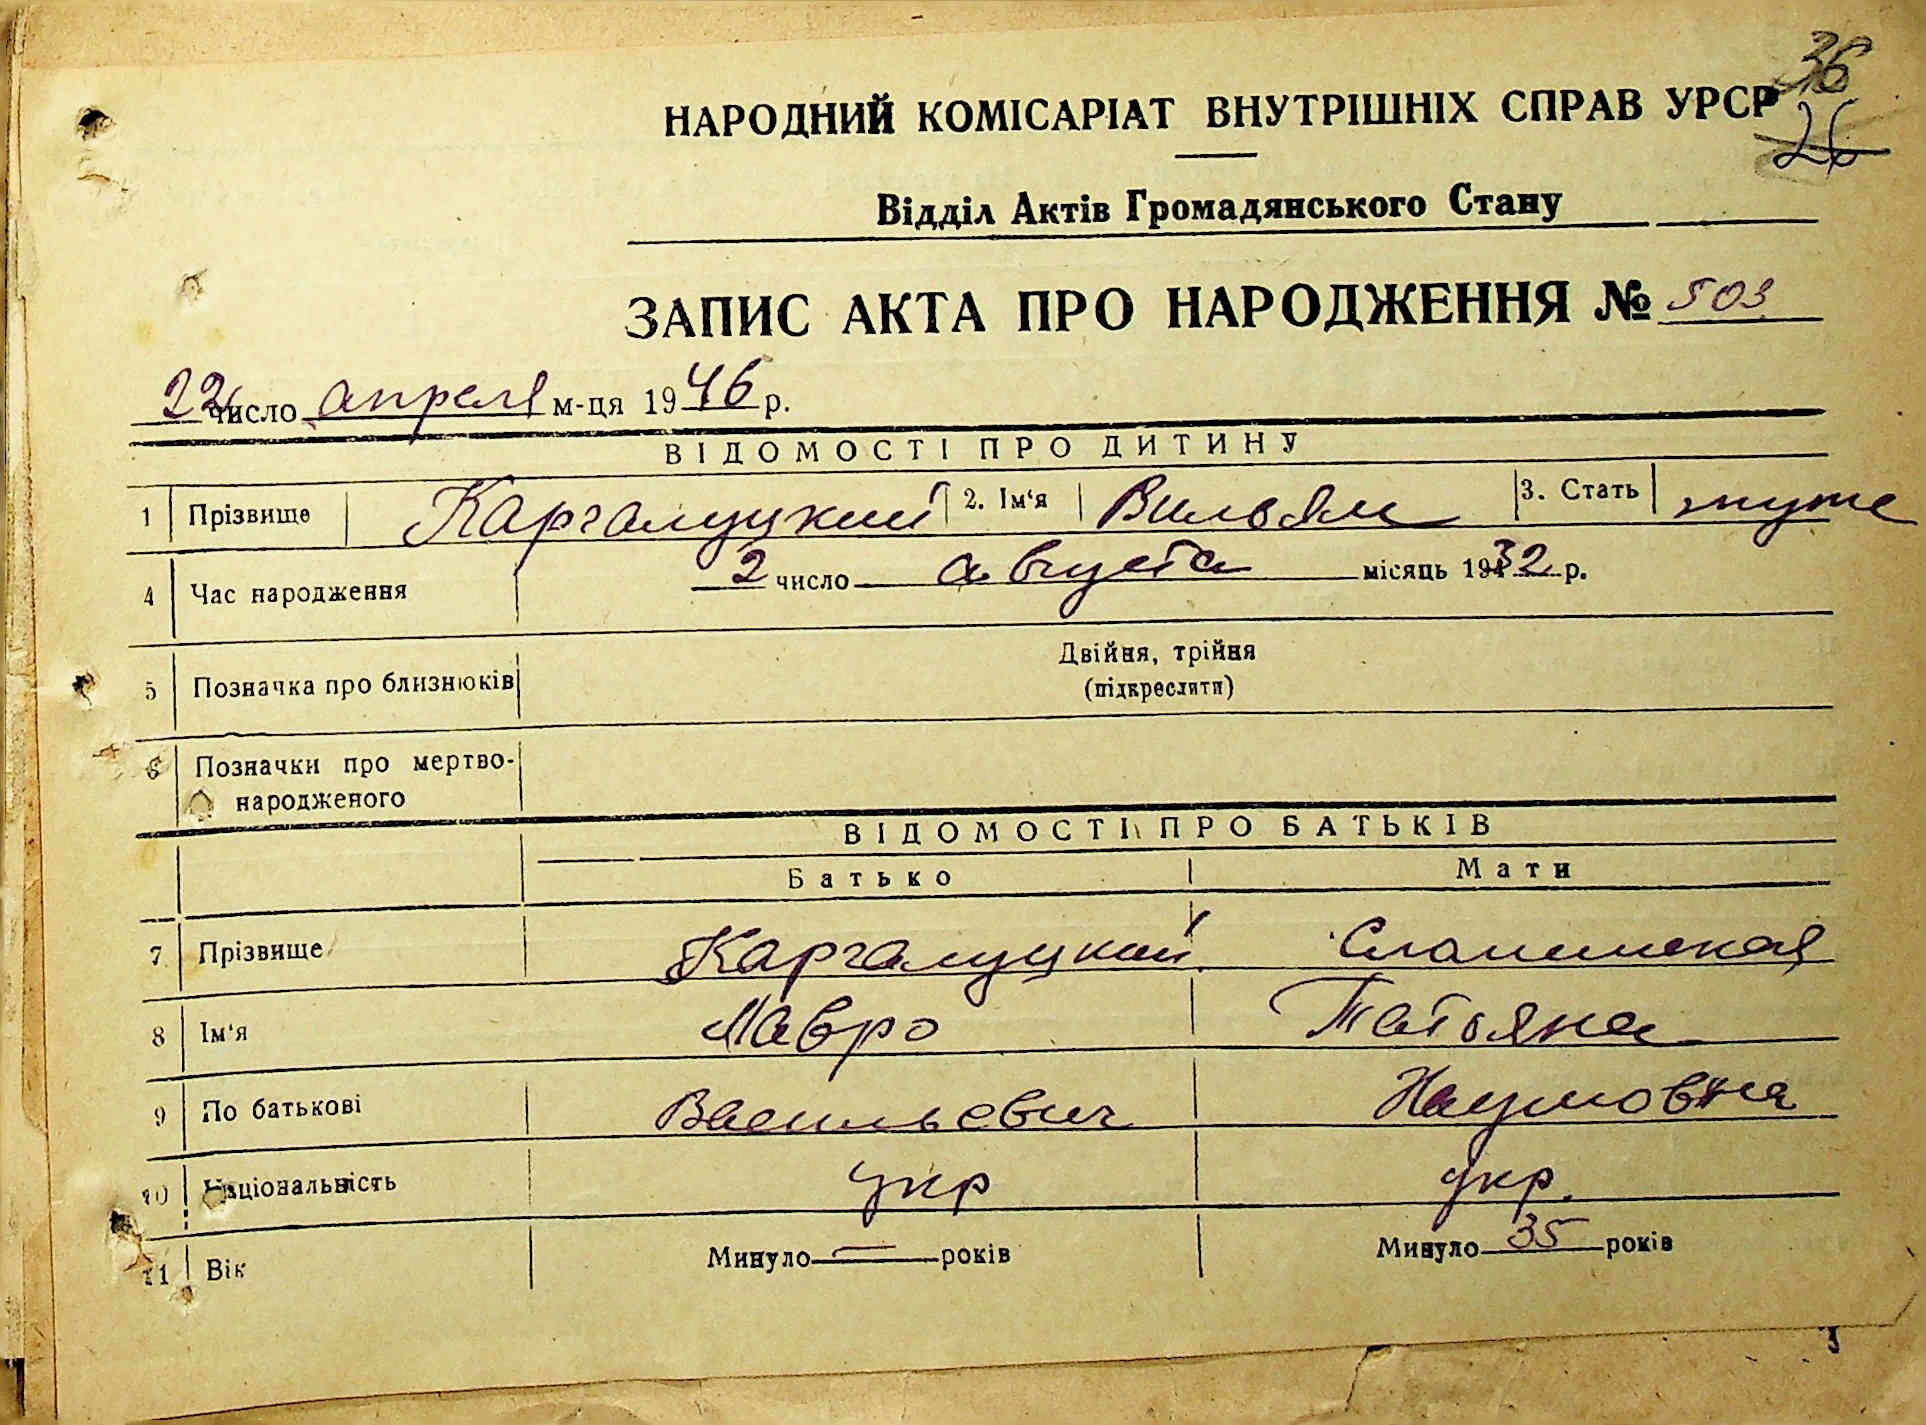 36
26
НАРОДНИЙ КОМІСАРІАТ ВНУТРІШНІХ СПРАВ УРСР
Відділ Актів Громадянського Стану
ЗАПИС АКТА ПРО НАРОДЖЕННЯ № 503
22 число апреля м-ця 1946 р.
ВІДОМОСТІ ПРО ДИТИНУ
1 Прізвище Каргалуцкий 2. Ім'я Вильям 3. Стать муже
4 Час народження 2 число августа місяць 1932 р.
Двійня, трійня
5 Позначка про близнюків (підкреслити)
6 Позначки про мертво-
народженого
ВІДОМОСТІ ПРО БАТЬКІВ
Батько Мати
7 Прізвище Каргалуцкий Слонимская
8 Ім'я Мавро Татьяна
9 По батькові Васильевич Наумовна
10 Національність укр укр.
11 Вік Минуло — років Минуло 35 років